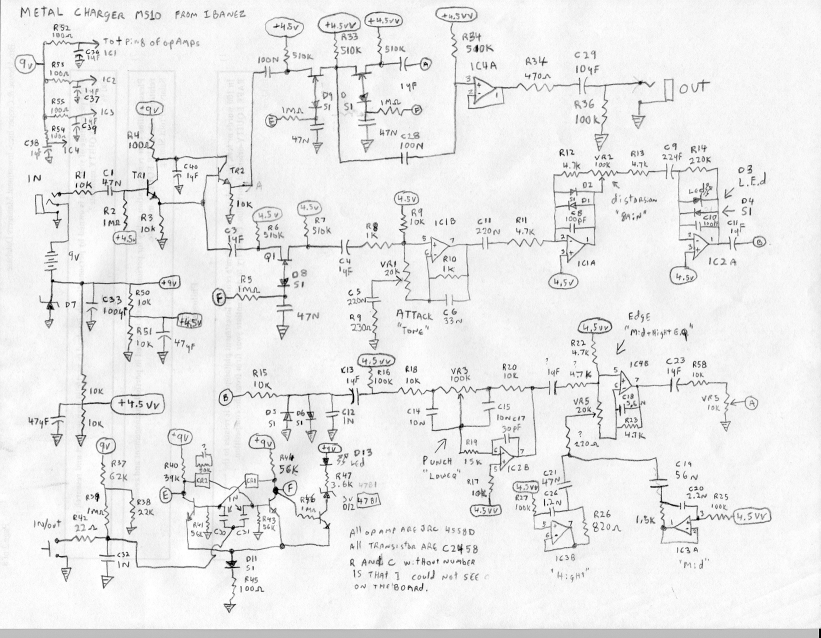 METAL CHARGER MS10 FROM IBANEZ
R52
100Ω
IC1
9v
R53
100Ω
IC2
C37
R55
100Ω
IC3
C39
R54
100Ω
C38
1µF
IC4
+9v
R4
100Ω
C40
1µF
TR1
TR2
10K
IN
R1
10K
C1
47N
R2
1MΩ
+4.5v
R3
10K
9v
D7
C33
100µF
R50
10K
+9v
+4.5v
R51
10K
47µF
10K
+4.5V
47µF
10K
100N
+4.5v
510K
+4.5vv
R33
510K
+4.5vv
510K
A
1µF
D9
S1
D
S1
1MΩ
E
47N
1MΩ
F
47N
C28
100N
+4.5vv
R34
510K
IC4A
3
2
1
R34
470Ω
C29
10µF
R36
100K
OUT
C3
1µF
4.5v
R6
510K
Q1
D8
S1
R5
1MΩ
F
47N
4.5v
R7
510K
C4
1µF
R8
1K
4.5v
R9
10K
IC1B
R10
1K
VR1
20K
C5
220N
R9
230Ω
C6
33N
ATTACK
"TONE"
C11
220N
R11
4.7K
R12
4.7K
VR2
100K
R13
4.7K
D2
D1
C8
100pF
distorsion
"gain"
IC1A
4.5v
C9
.22µF
R14
220K
D3
L.E.d
D4
S1
C11
1µF
B
IC2A
4.5v
B
R15
10K
D5
S1
D6
S1
C12
1N
C13
1µF
4.5vv
R16
100K
R18
10K
VR3
100K
R20
10K
C14
10N
C15
10N
C17
30pF
PUNCH
"Lower"
R19
15K
IC2B
R17
10K
4.5vv
?
1µF
?
4.7K
4.5vv
R22
4.7K
Edge
"Mid+HightEQ"
IC4B
C18
3.6N
R23
4.7K
C23
1µF
R58
10K
VR5
10K
A
VR5
20K
?
220Ω
C21
47N
C26
1.2N
4.5vv
R27
100K
R26
820Ω
IC3B
"Hight"
C19
56N
C20
2.2N
R25
100K
4.5vv
1.5K
IC3A
"Mid"
9v
R37
62K
R39
1MΩ
R38
22K
in/out
R42
22Ω
C32
1N
+9v
R40
39K
E
?
CR2
CR1
1N
C30
C31
R41
56K
R43
56K
+9v
R44
56K
F
D11
S1
R45
100Ω
+9v
D13
Led
R47
3.6K
D12
4781
R46
1MΩ
All opAMP ARE JRC 4558D
All TRANSISTOR ARE C2458
R AND C without NUMBER
IS THAT I COULD NOT SEE
ON THE BOARD.